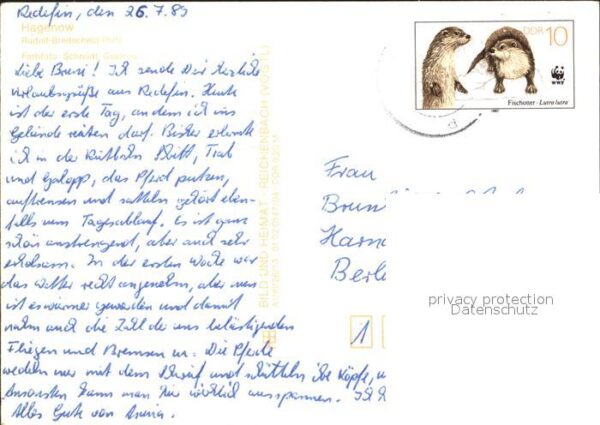 Redefin, den 26.7.89
Hagenow
Rudolf-Breitscheid-Platz
Farbfoto: Schmidt,
Liebe Bruni! Ich sende Dir herzliche
Urlaubsgrüße aus Redefin. Heute
ist der erste Tag, an dem ich ins
Gelände reiten darf. Bisher erlernte
ich in der Reitbahn Schritt, Trab
und Galopp, das Pferd putzen,
auftrensen und satteln gehört eben-
falls zum Tagesablauf. Es ist ganz
schön anstrengend, aber auch sehr
erholsam. In der ersten Woche war
das Wetter recht angenehm, aber nun
ist es wärmer geworden und damit
nahm auch die Zahl der uns belästigenden
Fliegen und Bremsen zu. Die Pferde
wedeln nur mit dem Schweif und schütteln ihre Köpfe,
Ansonsten kann man hier wirklich ausspannen.
Alles Gute von
BILD UND HEIMAT REICHENBACH (VOGTL)
DDR 10
WWF
Fischotter - Lutra lutra
Frau
Brun
Berl
1
privacy protection
Datenschutz